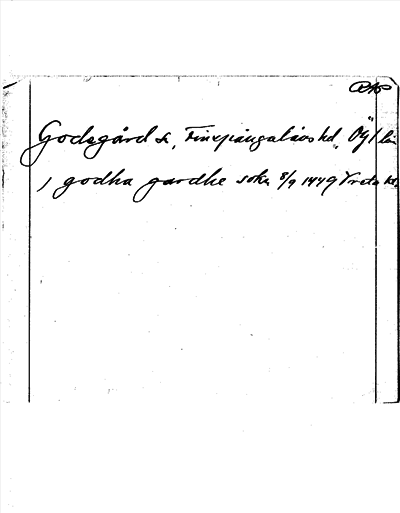 RAP
Godegård sn, Finspångaläns hd, Ög l län
i godha gardhe sokn 8/9 1449 Vreta kl.